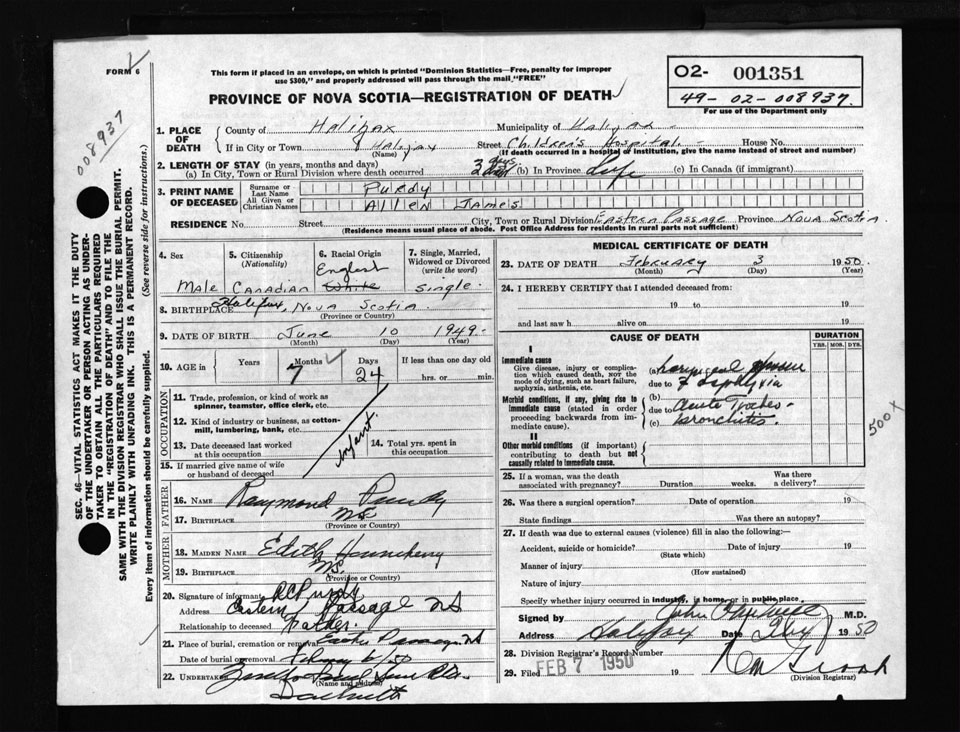 FORM 6
This form if placed in an envelope, on which is printed "Dominion Statistics—Free, penalty for improper
use $300," and properly addressed will pass through the mail "FREE"
PROVINCE OF NOVA SCOTIA—REGISTRATION OF DEATH
O2- 001351
49-02-008937.
For use of the Department only
008937
SEC. 46—VITAL STATISTICS ACT MAKES IT THE DUTY
OF THE UNDERTAKER OR PERSON ACTING AS UNDER-
TAKER TO OBTAIN ALL THE PARTICULARS REQUIRED
IN THE "REGISTRATION OF DEATH" AND TO FILE THE
SAME WITH THE DIVISION REGISTRAR WHO SHALL ISSUE THE BURIAL PERMIT.
WRITE PLAINLY WITH UNFADING INK. THIS IS A PERMANENT RECORD.
Every item of information should be carefully supplied. (See reverse side for instructions.)
1. PLACE OF DEATH
County of Halifax Municipality of Halifax
If in City or Town Halifax Street Children's Hospital. House No.
(Name) (If death occurred in a hospital or institution, give the name instead of street and number)
2. LENGTH OF STAY (in years, months and days)
(a) In City, Town or Rural Division where death occurred 3 days (b) In Province Life (c) In Canada (if immigrant)
3. PRINT NAME OF DECEASED
Surname or Last Name Purdy
All Given or Christian Names Allen James
RESIDENCE No. Street City, Town or Rural Division Eastern Passage Province Nova Scotia
(Residence means usual place of abode. Post Office Address for residents in rural parts not sufficient)
4. Sex 5. Citizenship (Nationality) 6. Racial Origin 7. Single, Married, Widowed or Divorced (write the word)
Male Canadian English White Single
8. BIRTHPLACE Halifax, Nova Scotia
(Province or Country)
9. DATE OF BIRTH June 10 1949
(Month) (Day) (Year)
10. AGE in Years Months Days If less than one day old
7 24 hrs. or min.
OCCUPATION
11. Trade, profession, or kind of work as
spinner, teamster, office clerk, etc.
12. Kind of industry or business, as cotton-
mill, lumbering, bank, etc.
Infant.
13. Date deceased last worked at this occupation
14. Total yrs. spent in this occupation
15. If married give name of wife
or husband of deceased
FATHER
16. NAME Raymond Purdy
17. BIRTHPLACE N.S.
(Province or Country)
MOTHER
18. MAIDEN NAME Edith
19. BIRTHPLACE N.S.
(Province or Country)
20. Signature of informant R C Purdy
Address Eastern Passage NS
Relationship to deceased Father.
21. Place of burial, cremation or removal NS
Date of burial or removal 6/50
22. UNDERTAKER
(Name and address)
MEDICAL CERTIFICATE OF DEATH
23. DATE OF DEATH February 3 1950.
(Month) (Day) (Year)
24. I HEREBY CERTIFY that I attended deceased from:
19 to 19
and last saw h alive on 19
CAUSE OF DEATH
DURATION
YRS. MOS. DYS.
I
Immediate cause
Give disease, injury or complica-
tion which caused death, NOT the
mode of dying, such as heart failure,
asphyxia, asthenia, etc.
(a) Laryngeal
due to & asphyxia
Morbid conditions, if any, giving rise to
immediate cause (stated in order
proceeding backwards from im-
mediate cause).
(b)
due to Acute Tracheo-
(c) bronchitis.
500x
II
Other morbid conditions (if important)
contributing to death but not
causally related to immediate cause.
25. If a woman, was the death
associated with pregnancy? Duration weeks. Was there a delivery?
26. Was there a surgical operation? Date of operation 19
State findings Was there an autopsy?
27. If death was due to external causes (violence) fill in also the following:—
Accident, suicide or homicide? Date of injury 19
(State which)
Manner of injury
(How sustained)
Nature of injury
Specify whether injury occurred in industry, in home, or in public place.
Signed by John M.D.
Address Halifax Date 1950
28. Division Registrar's Record Number
29. Filed FEB 7 1950
(Division Registrar)